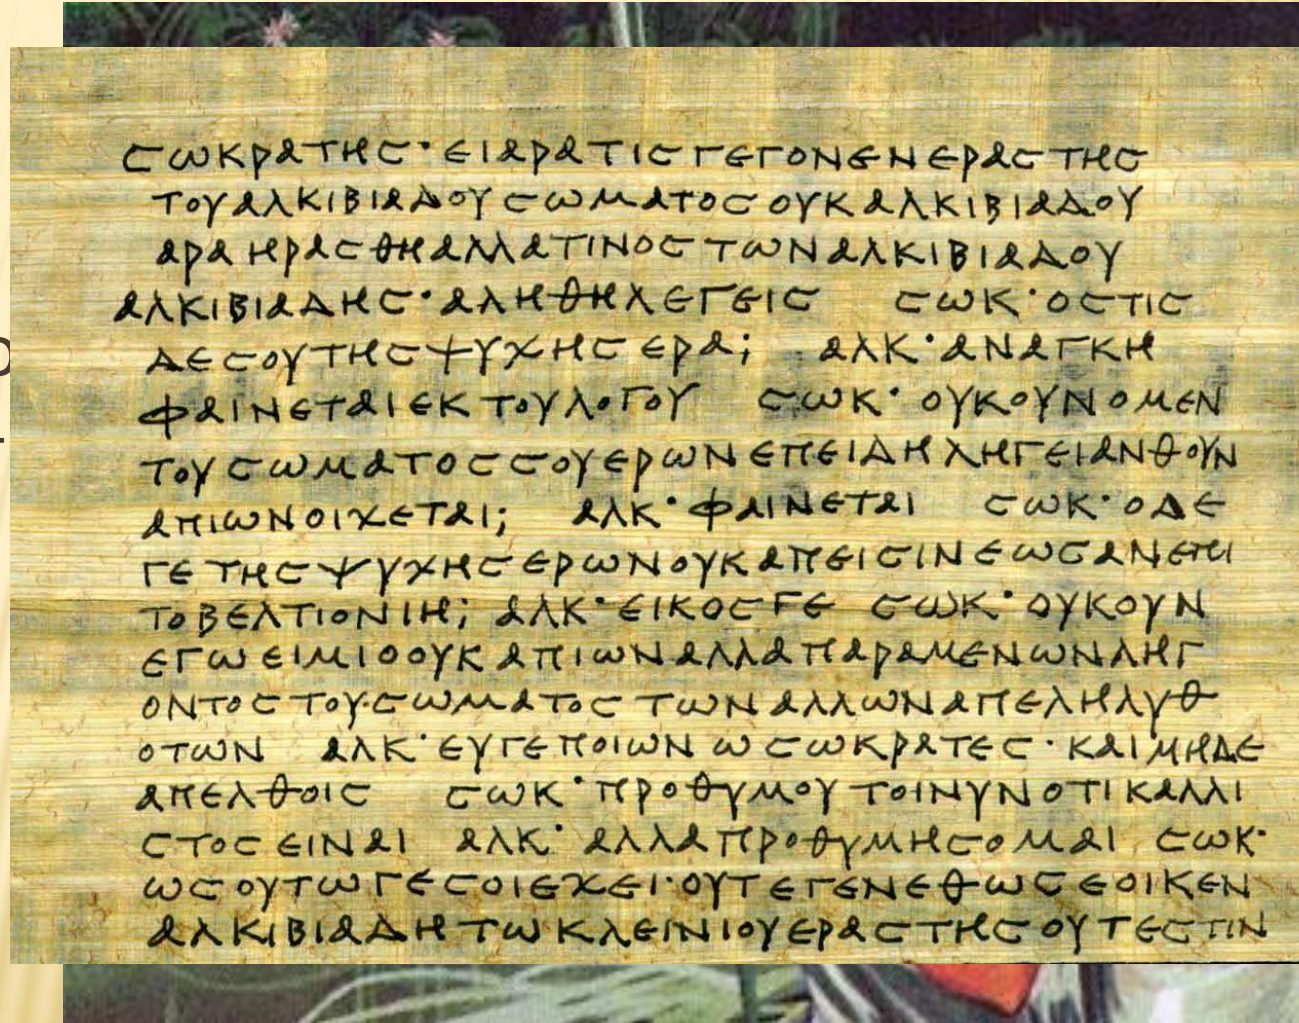 ϹΩΚΡΑΤΗϹ· ΕΙΑΡΑΤΙϹΓΕΓΟΝΕΝΕΡΑϹΤΗϹ
ΤΟΥΑΛΚΙΒΙΑΔΟΥϹΩΜΑΤΟϹΟΥΚΑΛΚΙΒΙΑΔΟΥ
ΑΡΑΗΡΑϹΘΗΑΛΛΑΤΙΝΟϹΤΩΝΑΛΚΙΒΙΑΔΟΥ
ΑΛΚΙΒΙΑΔΗϹ·ΑΛΗΘΗΛΕΓΕΙϹ ϹΩΚ·ΟϹΤΙϹ
ΔΕϹΟΥΤΗϹΨΥΧΗϹΕΡΑ; ΑΛΚ·ΑΝΑΓΚΗ
ΦΑΙΝΕΤΑΙΕΚΤΟΥΛΟΓΟΥ ϹΩΚ· ΟΥΚΟΥΝΟΜΕΝ
ΤΟΥϹΩΜΑΤΟϹϹΟΥΕΡΩΝΕΠΕΙΔΗΛΗΓΕΙΑΝΘΟΥΝ
ΑΠΙΩΝΟΙΧΕΤΑΙ; ΑΛΚ·ΦΑΙΝΕΤΑΙ ϹΩΚ·ΟΔΕ
ΓΕΤΗϹΨΥΧΗϹΕΡΩΝΟΥΚΑΠΕΙϹΙΝΕΩϹΑΝΕΠΙ
ΤΟΒΕΛΤΙΟΝΙΗ; ΑΛΚ·ΕΙΚΟϹΓΕ ϹΩΚ·ΟΥΚΟΥΝ
ΕΓΩΕΙΜΙΟΟΥΚΑΠΙΩΝΑΛΛΑΠΑΡΑΜΕΝΩΝΛΗΓ
ΟΝΤΟϹΤΟΥ·ϹΩΜΑΤΟϹΤΩΝΑΛΛΩΝΑΠΕΛΗΛΥΘ
ΟΤΩΝ ΑΛΚ·ΕΥΓΕΠΟΙΩΝΩϹΩΚΡΑΤΕϹ·ΚΑΙΜΗΔΕ
ΑΠΕΛΘΟΙϹ ϹΩΚ·ΠΡΟΘΥΜΟΥΤΟΙΝΥΝΟΤΙΚΑΛΛΙ
ϹΤΟϹΕΙΝΑΙ ΑΛΚ·ΑΛΛΑΠΡΟΘΥΜΗϹΟΜΑΙ ϹΩΚ·
ΩϹΟΥΤΩΓΕϹΟΙΕΧΕΙ·ΟΥΤΕΓΕΝΕΘΩϹΕΟΙΚΕΝ
ΑΛΚΙΒΙΑΔΗΤΩΚΛΕΙΝΙΟΥΕΡΑϹΤΗϹΟΥΤΕϹΤΙΝ